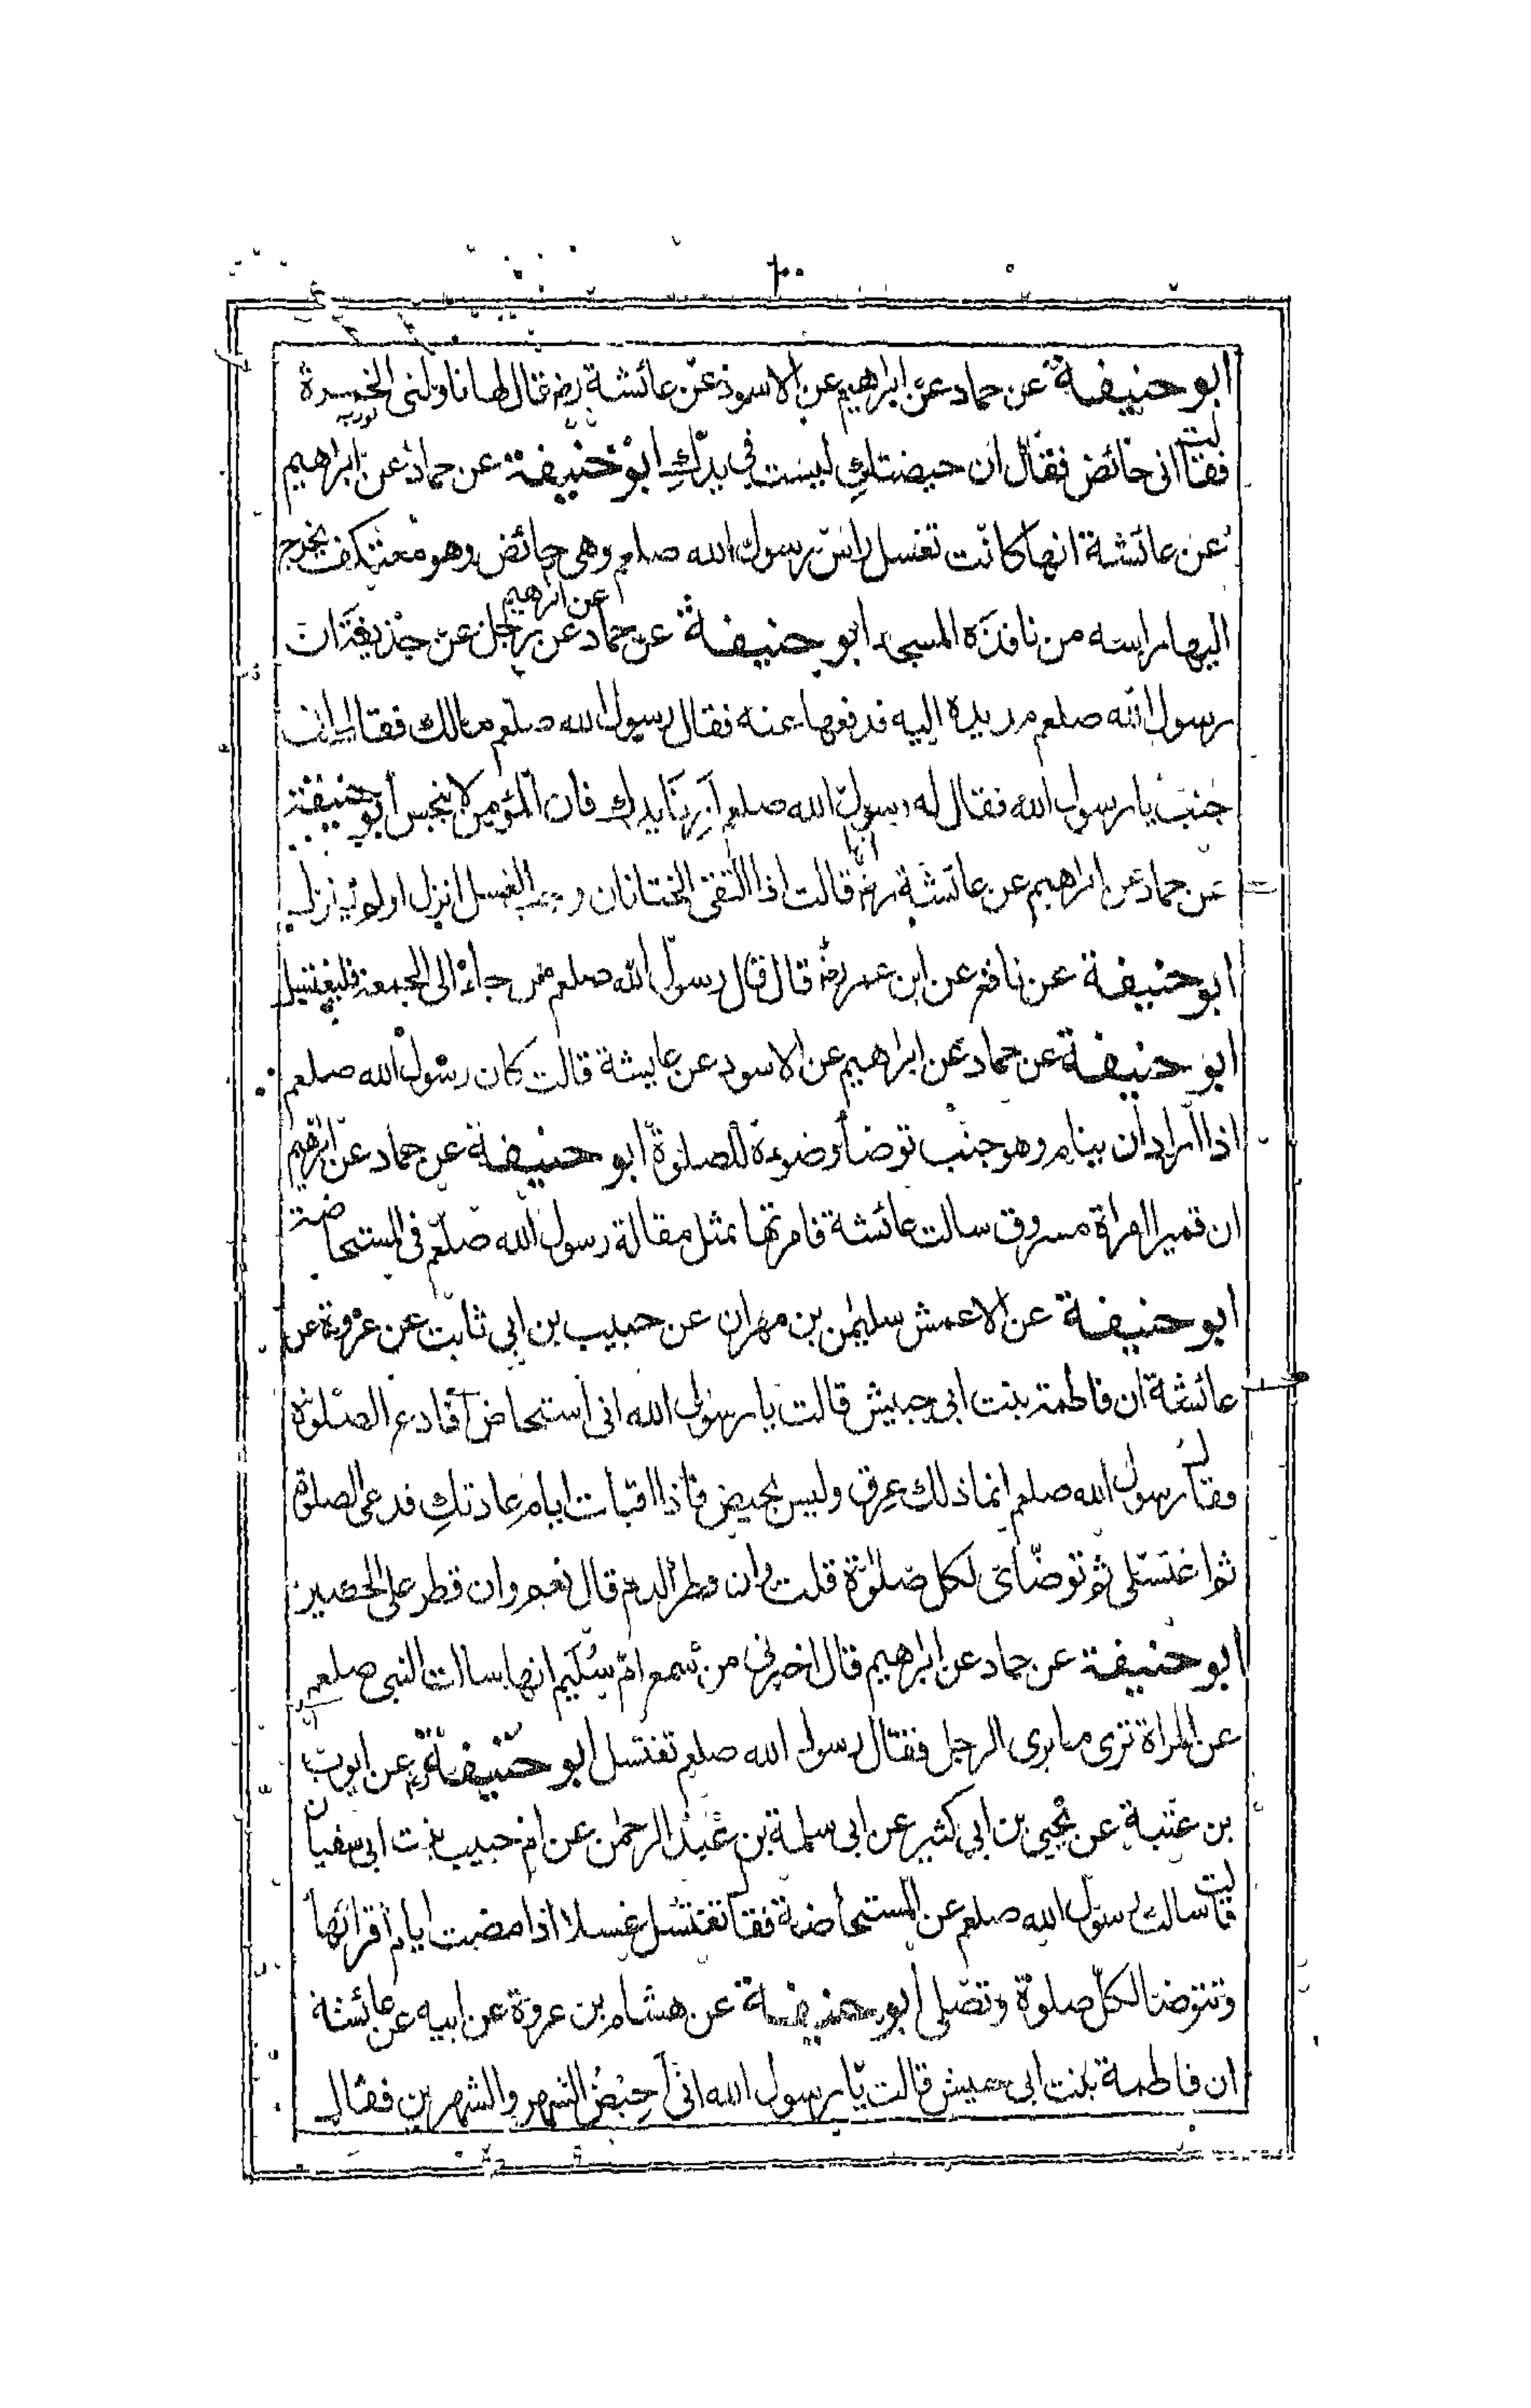 ابو حنيفة عن حماد عن ابراهيم عن الاسود عن عائشة رضـ قال لها ناوليني الخمرة
فقالت انى حائض فقال ان حيضتك ليست فى يدك ابو حنيفة عن حماد عن ابراهيم
عن عائشة انها كانت تغسل راس رسول الله صلعم وهى حائض وهو معتكف يخرج
اليها راسه من نافذة المسجد ابو حنيفة عن حماد عن ابراهيم عن رجل عن حذيفة ان
رسول الله صلعم مد يده اليه فدفعها عنه فقال رسول الله صلعم مالك فقال انى
جنب يا رسول الله فقال له رسول الله صلعم ارنا يدك فان المؤمن لا ينجس ابو حنيفة
عن حماد عن ابراهيم عن عائشة رضـ انها قالت اذا التقى الختانان وجب الغسل انزل او لم ينزل
ابو حنيفة عن نافع عن ابن عمر رضـ قال قال رسول الله صلعم من جاء الى الجمعة فليغتسل
ابو حنيفة عن حماد عن ابراهيم عن الاسود عن عايشة قالت كان رسول الله صلعم
اذا اراد ان ينام وهو جنب توضأ وضوءه للصلوة ابو حنيفة عن حماد عن ابراهيم
ان قميرا امراة مسروق سالت عائشة فامرتها بمثل مقالة رسول الله صلعم فى المستحاضة
ابو حنيفة عن الاعمش سليمٰن بن مهران عن حبيب بن ابي ثابت عن عروة عن
عائشة ان فاطمة بنت ابى حبيش قالت يا رسول الله انى استحاض افادع الصلوة
فقال رسول الله صلعم انما ذلك عرق وليس بحيض فاذا اقبلت ايام عادتك فدعى الصلوة
ثم اغتسلى ثم توضّاى لكل صلوٰة قلت وان قطر الدم قال نعم وان قطر على الحصير
ابو حنيفة عن حماد عن ابراهيم قال اخبرنى من سمع امّ سُليم انها سالت النبى صلعم
عن المراة ترى ما يرى الرجل فقال رسول الله صلعم تغتسل ابو حنيفة عن ايوب
بن عتبة عن يحيى بن ابي كثير عن ابى سلمة بن عبد الرحمٰن عن ام حبيب بنت ابى سفيان
قالت سالت رسول الله صلعم عن المستحاضة فقال تغتسل غسلا اذا مضت ايام اقرائها
وتتوضا لكل صلوة وتصلى ابو حنيفة عن هشام بن عروة عن ابيه عن عائشة
ان فاطمة بنت ابى حبيش قالت يا رسول الله انى احيض الشهر والشهرين فقال